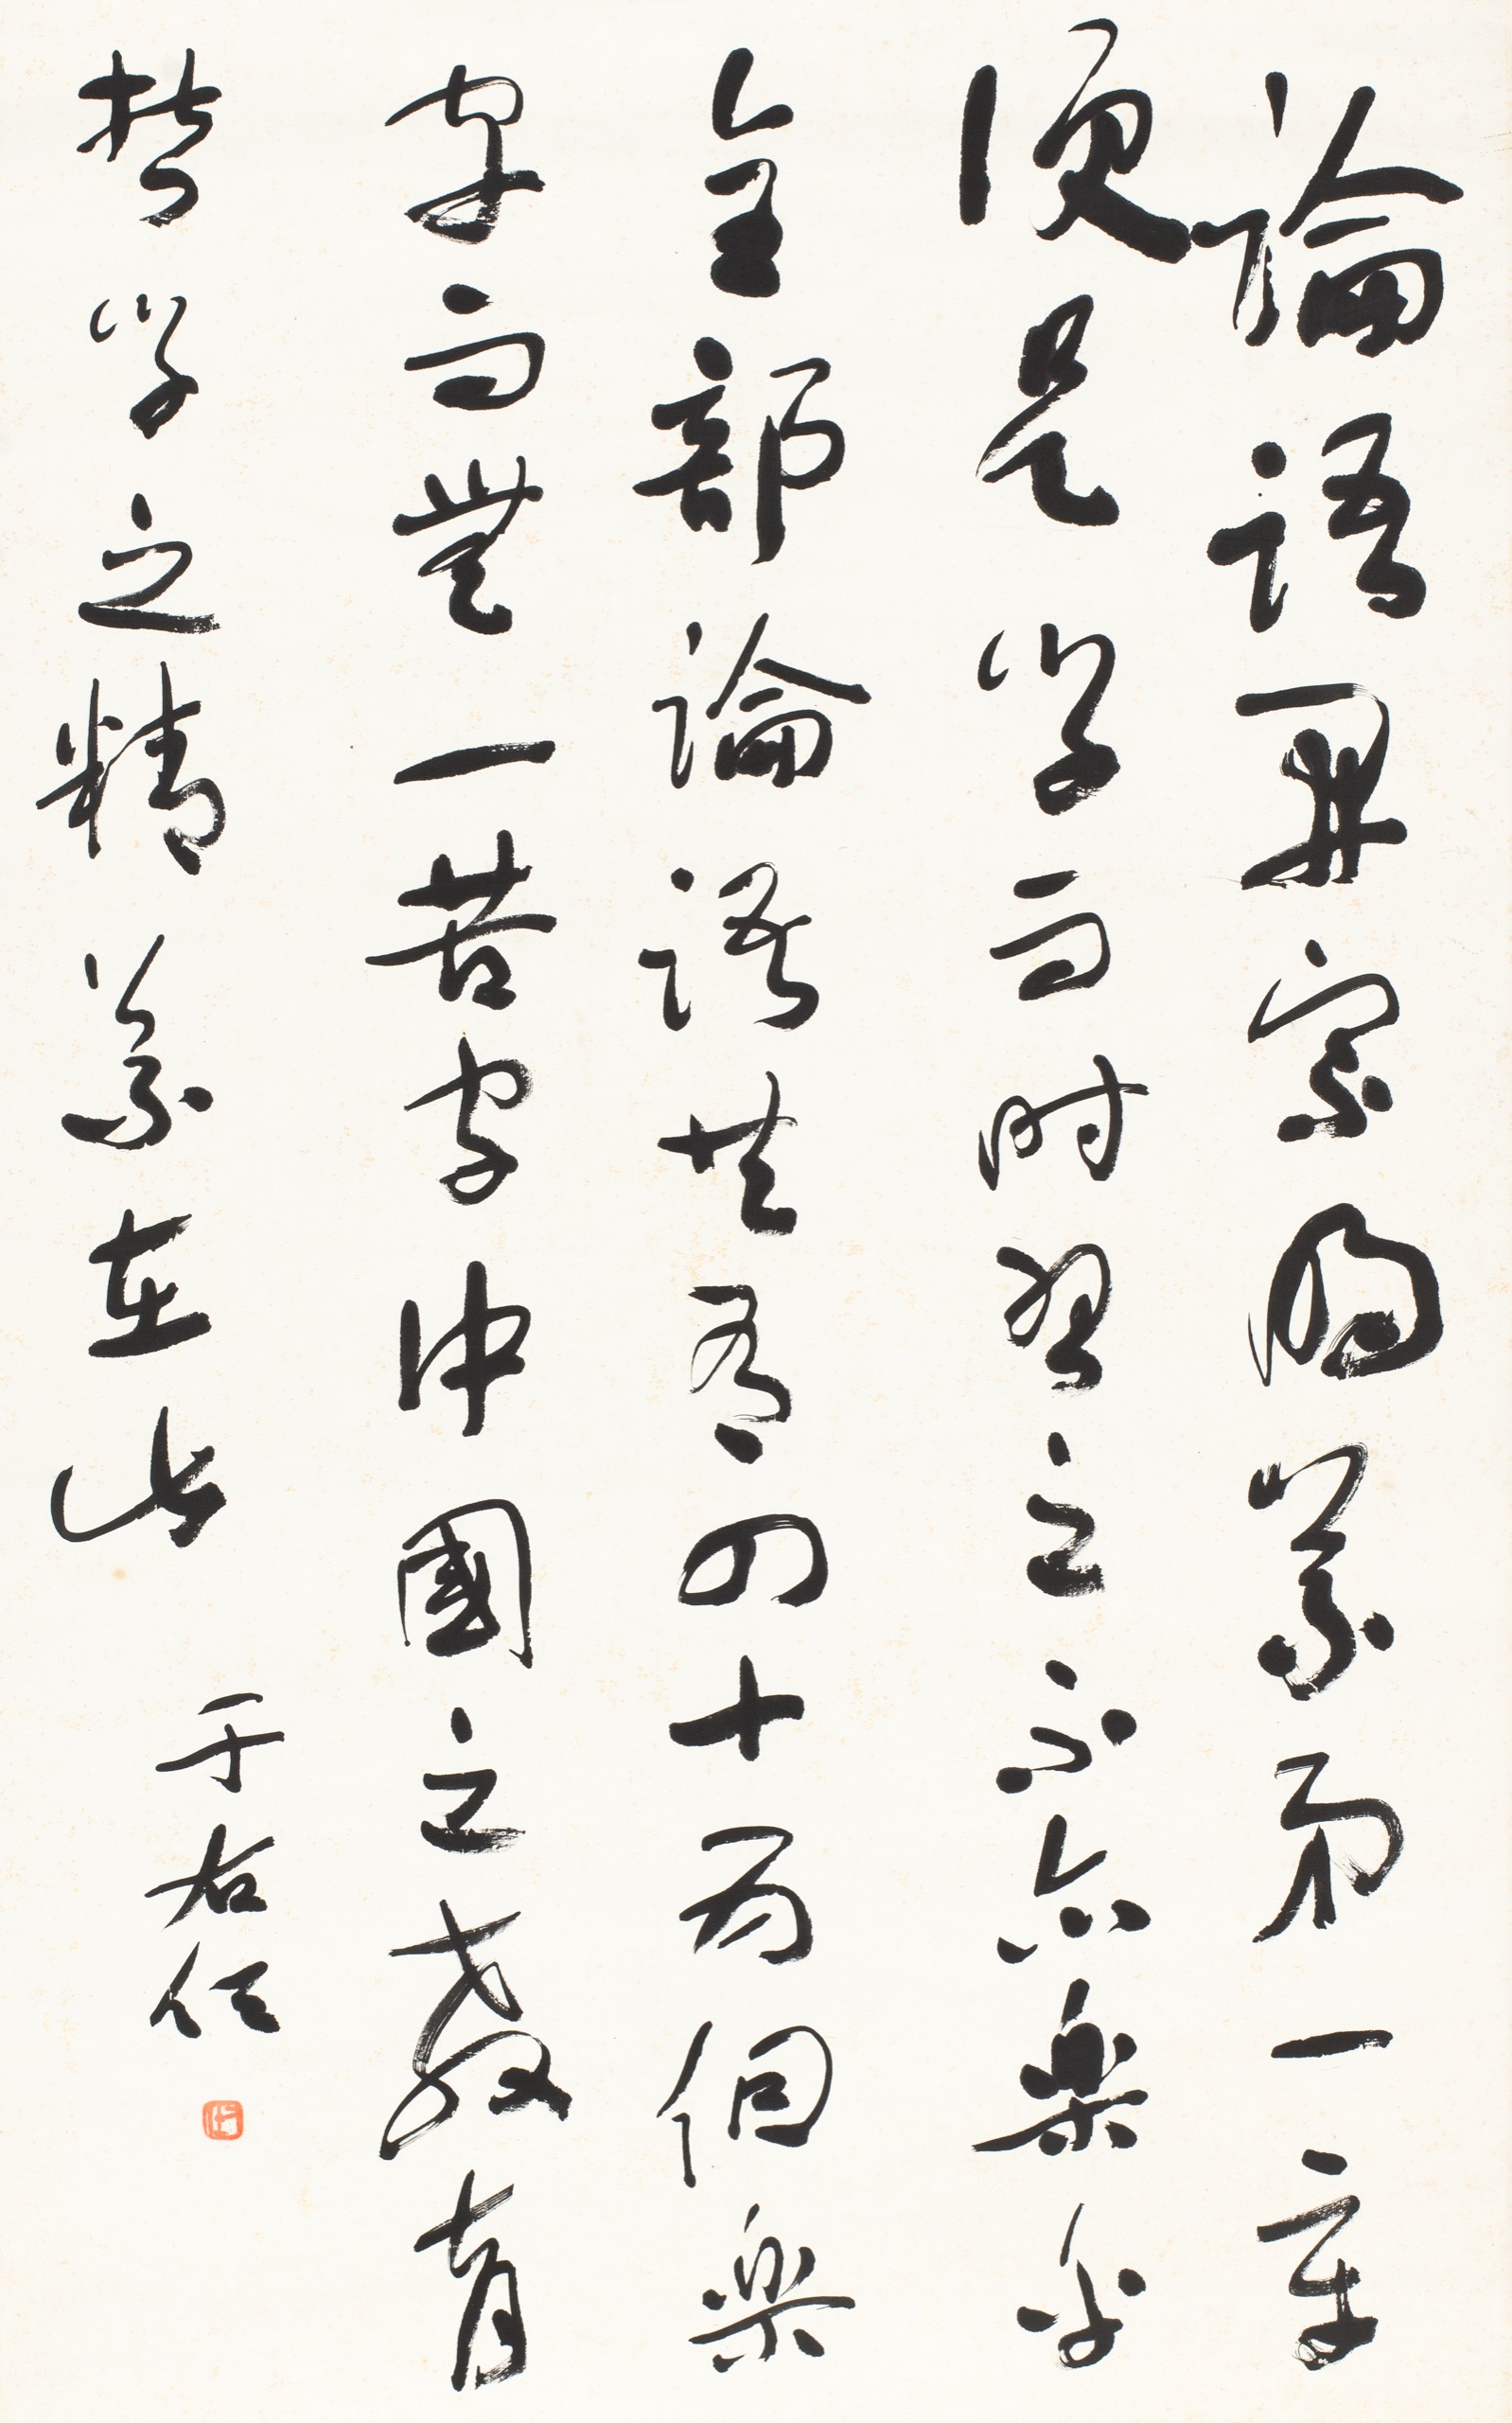 論語開宗明義第一章
便是學而時習之不亦樂乎
全部論語共有四十兩個樂
字而無一苦字中國之教育
哲學之精義在此
于右任